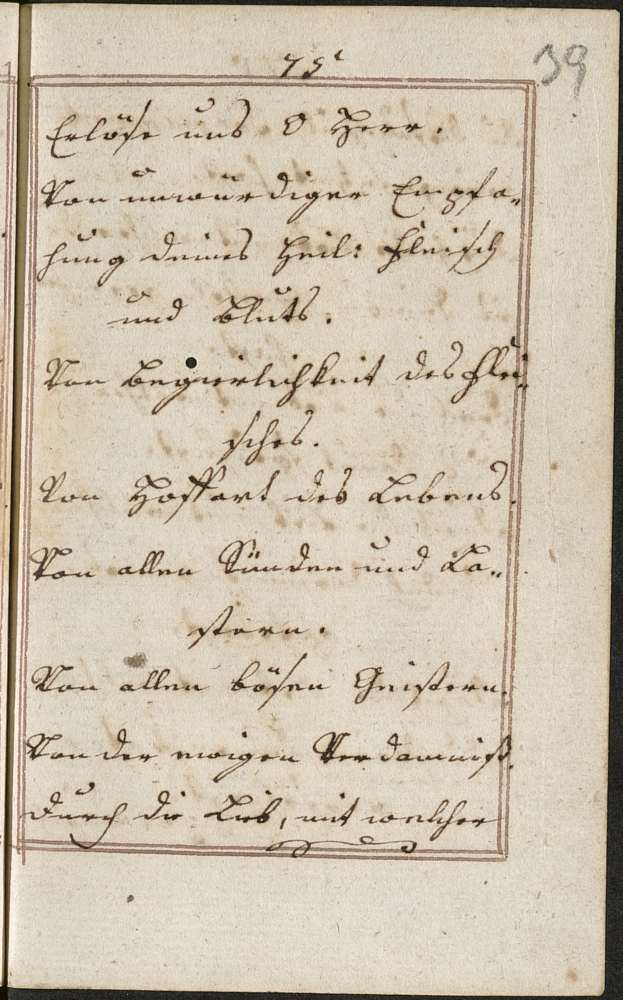 75
39
Erlöse uns O Herr.
Von unwürdiger Empfa-
hung deines Heil: Fleisch
und Bluts.
Von Begierlichkeit des Flei-
sches.
Von Hoffart des Lebens.
Von allen Sünden und La-
stern.
Von allen bösen Geistern.
Von der ewigen Verdamniß.
Durch die Lieb, mit welcher